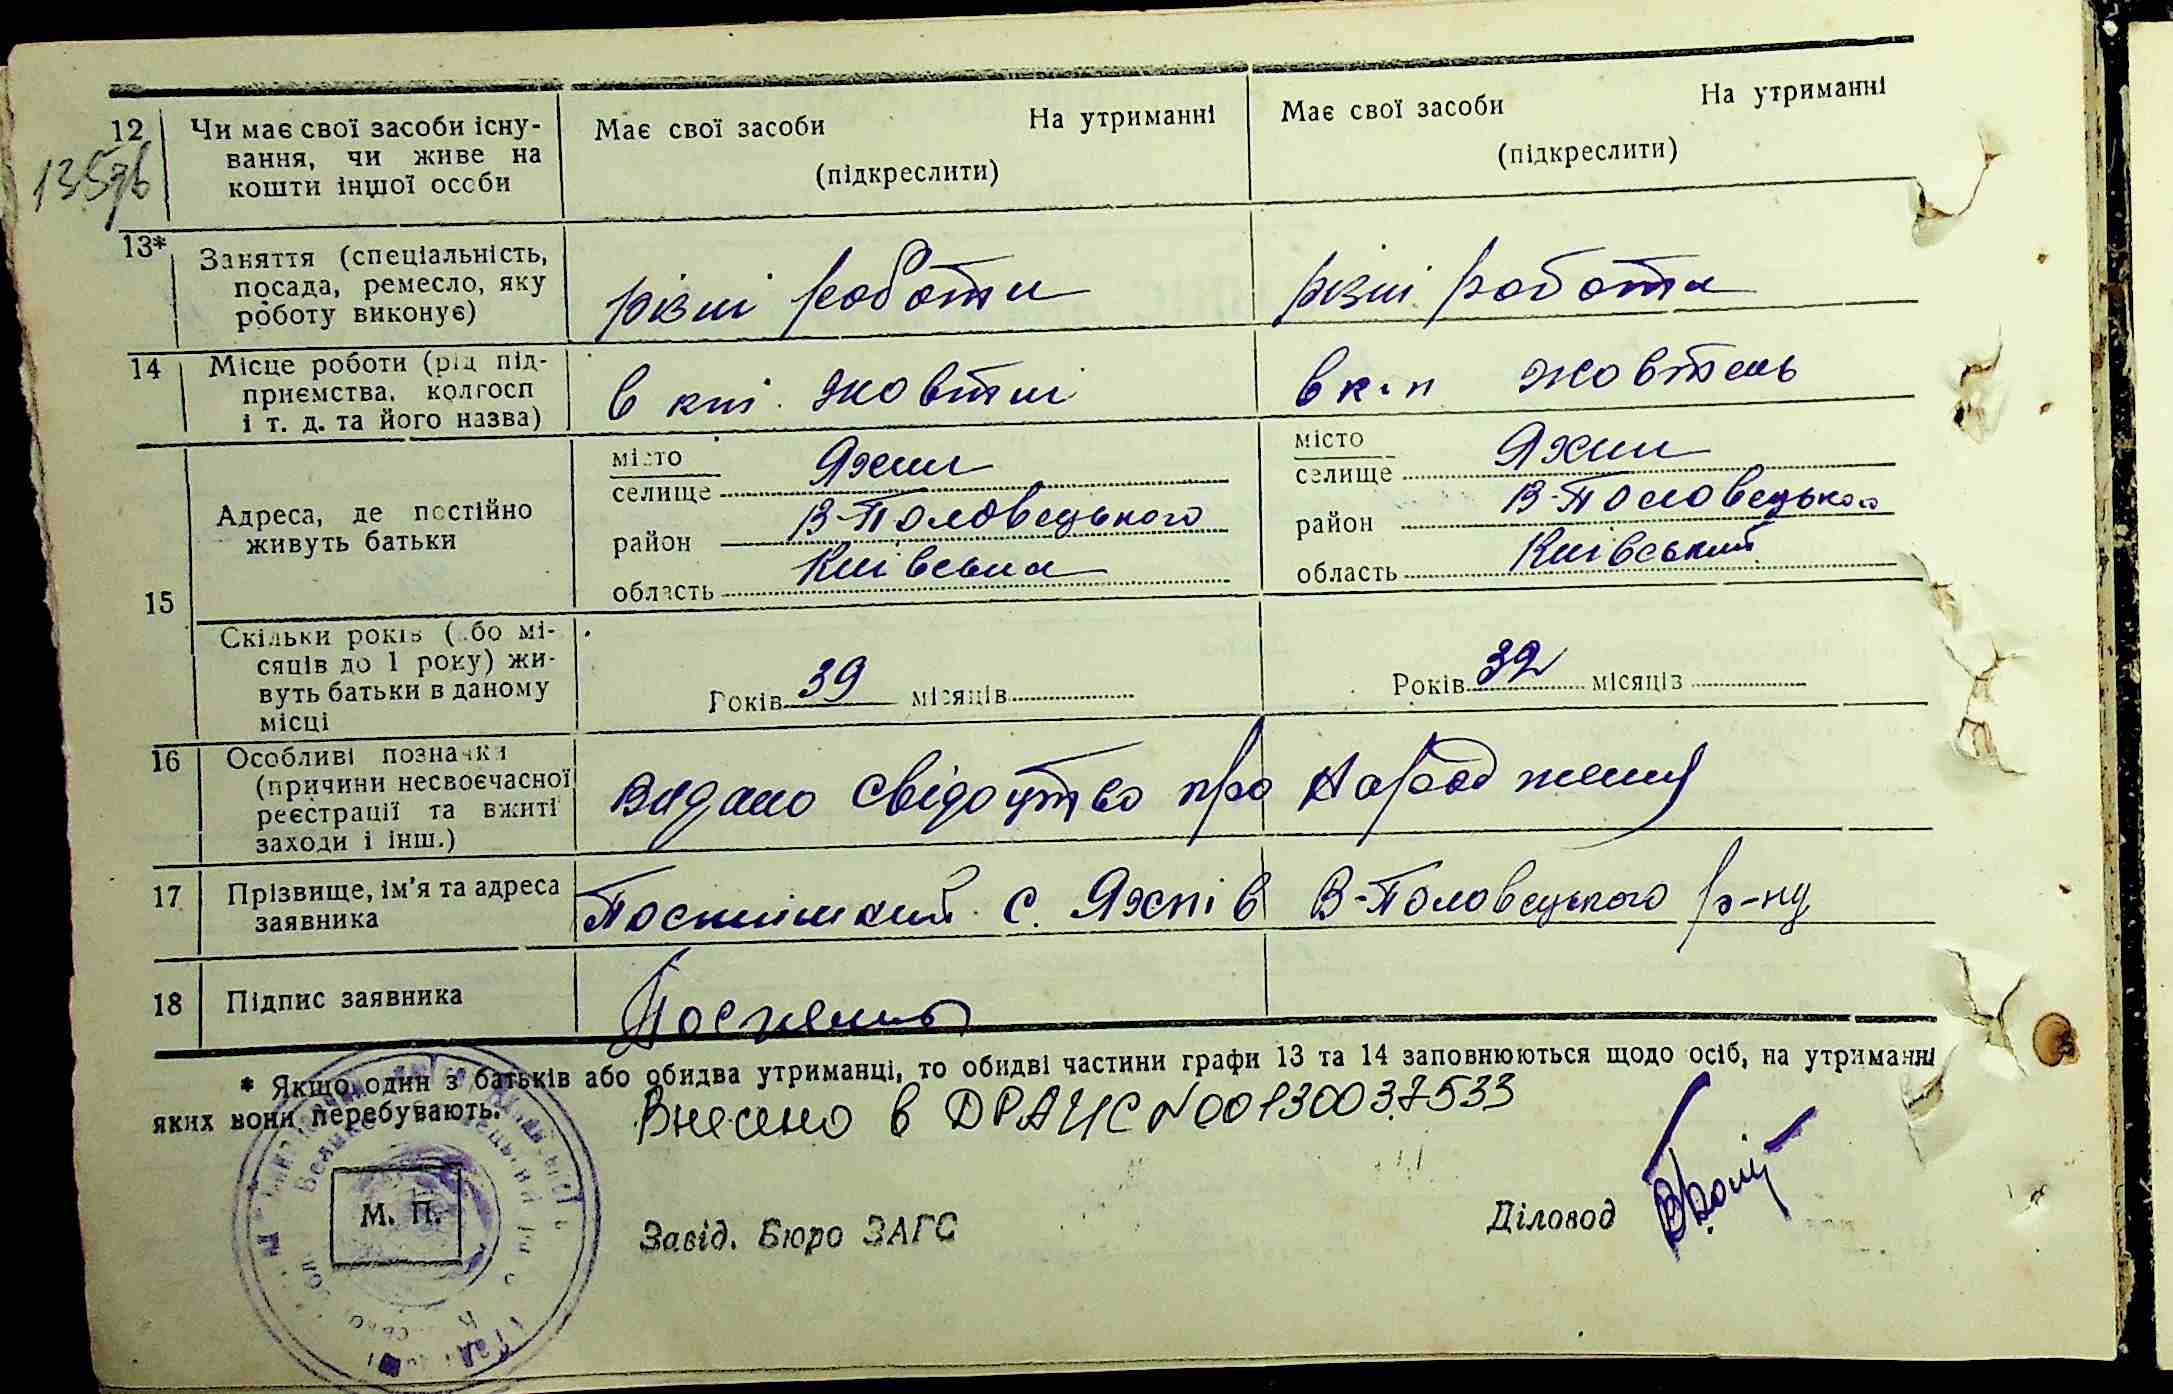 12 Чи має свої засоби існу- Має свої засоби На утриманні Має свої засоби На утриманні
вання, чи живе на (підкреслити) (підкреслити)
кошти іншої особи
13* Заняття (спеціальність,
посада, ремесло, яку різні роботи різні роботи
роботу виконує)
14 Місце роботи (рід під-
приємства, колгосп в Жовтні в к-п Жовтень
і т. д. та його назва)
місто Яхни місто Яхни
селище селище
15 Адреса, де постійно В-Половецького В-Половецького
живуть батьки район район
Київська Київський
область область
Скільки років (або мі-
сяців до 1 року) жи-
вуть батьки в даному Років 39 місяців Років 32 місяців
місці
16 Особливі позначки
(причини несвоєчасної видано свідоцтво про народження
реєстрації та вжиті
заходи і інш.)
17 Прізвище, ім'я та адреса с. Яхнів В-Половецького р-ну
заявника
18 Підпис заявника
* Якщо один з батьків або обидва утриманці, то обидві частини графи 13 та 14 заповнюються щодо осіб, на утриманні
яких вони перебувають.
Внесено в ДРАЦС N00130037533
М. П.
Завід. Бюро ЗАГС Діловод